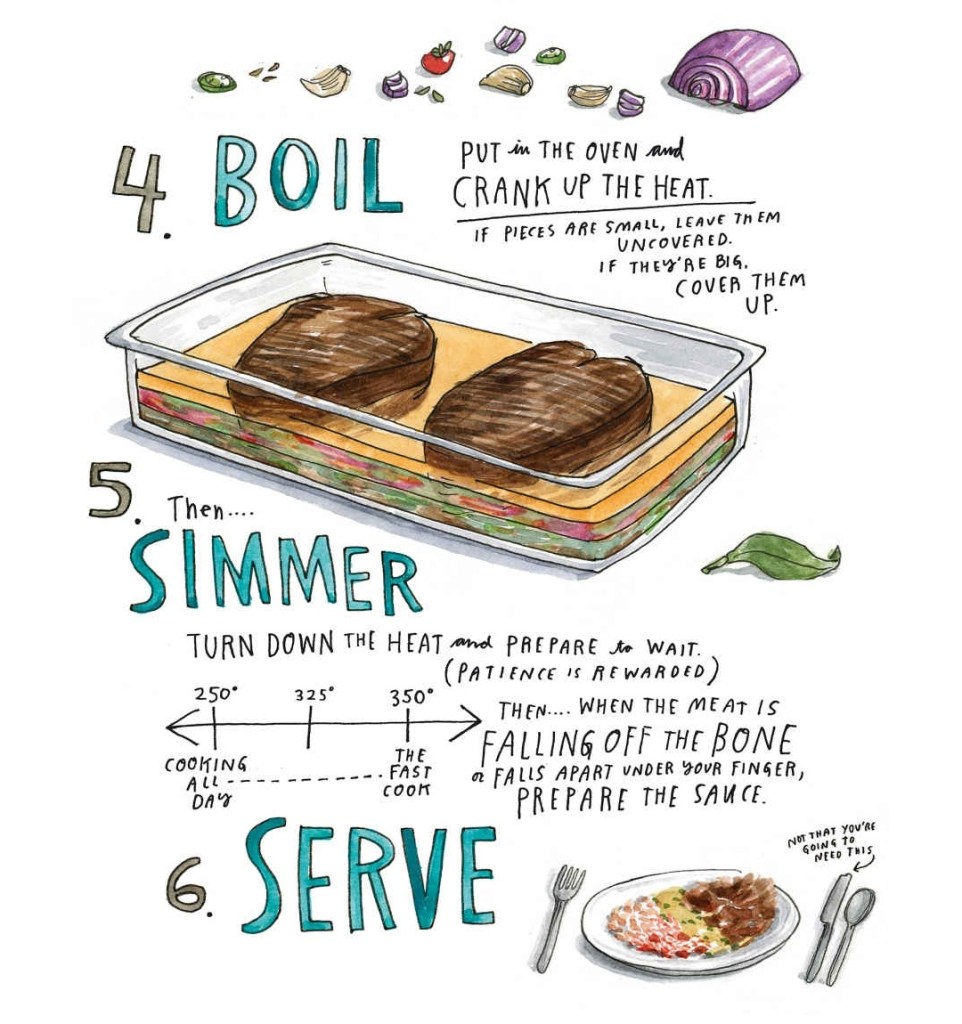 4. BOIL
PUT in THE OVEN and
CRANK UP THE HEAT.
IF PIECES ARE SMALL, LEAVE THEM
UNCOVERED.
IF THEY'RE BIG,
COVER THEM
UP.
5. Then....
SIMMER
TURN DOWN THE HEAT and PREPARE to WAIT.
(PATIENCE IS REWARDED)
250° 325° 350°
COOKING
ALL
DAY
THE
FAST
COOK
THEN.... WHEN THE MEAT IS
FALLING OFF THE BONE
or FALLS APART UNDER YOUR FINGER,
PREPARE THE SAUCE.
6. SERVE
NOT THAT YOU'RE
GOING TO
NEED THIS